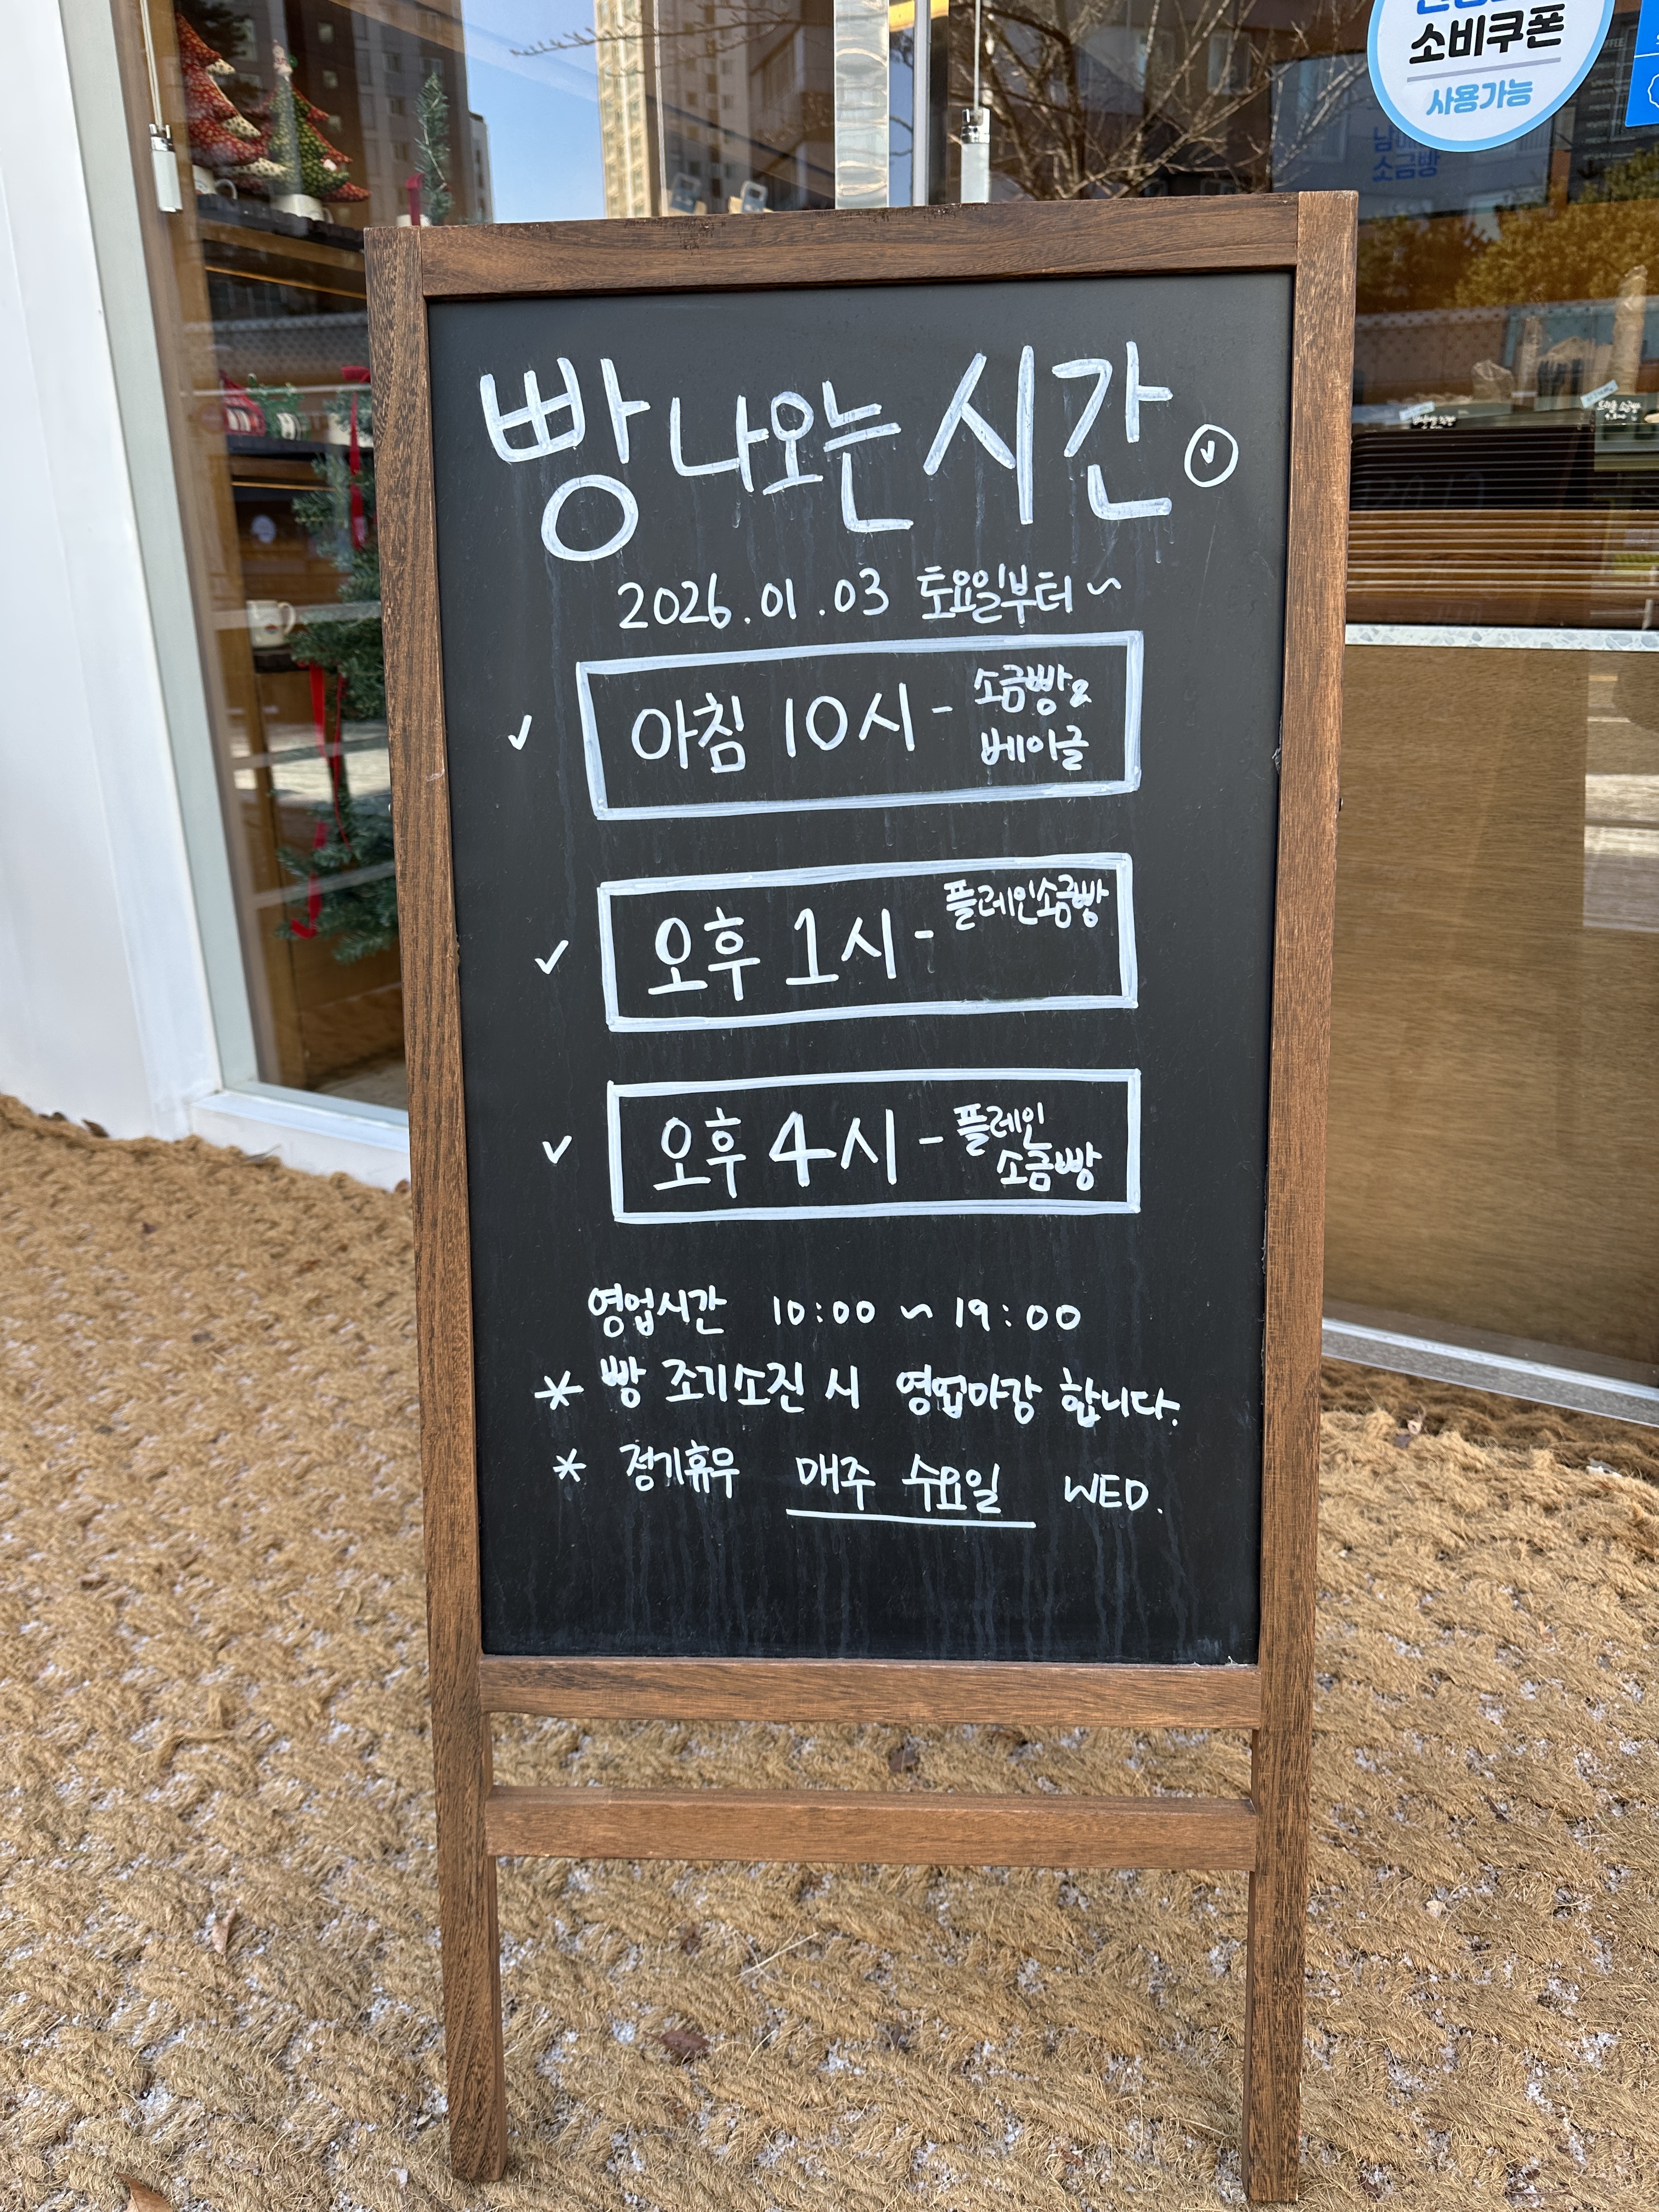 소비쿠폰
사용가능
소금빵
빵 나오는 시간
2026.01.03 토요일부터~
아침 10시 - 소금빵&
베이글
오후 1시 - 플레인소금빵
오후 4시 - 플레인
소금빵
영업시간 10:00 ~ 19:00
* 빵 조기소진 시 영업마감 합니다.
* 정기휴무 매주 수요일 WED.